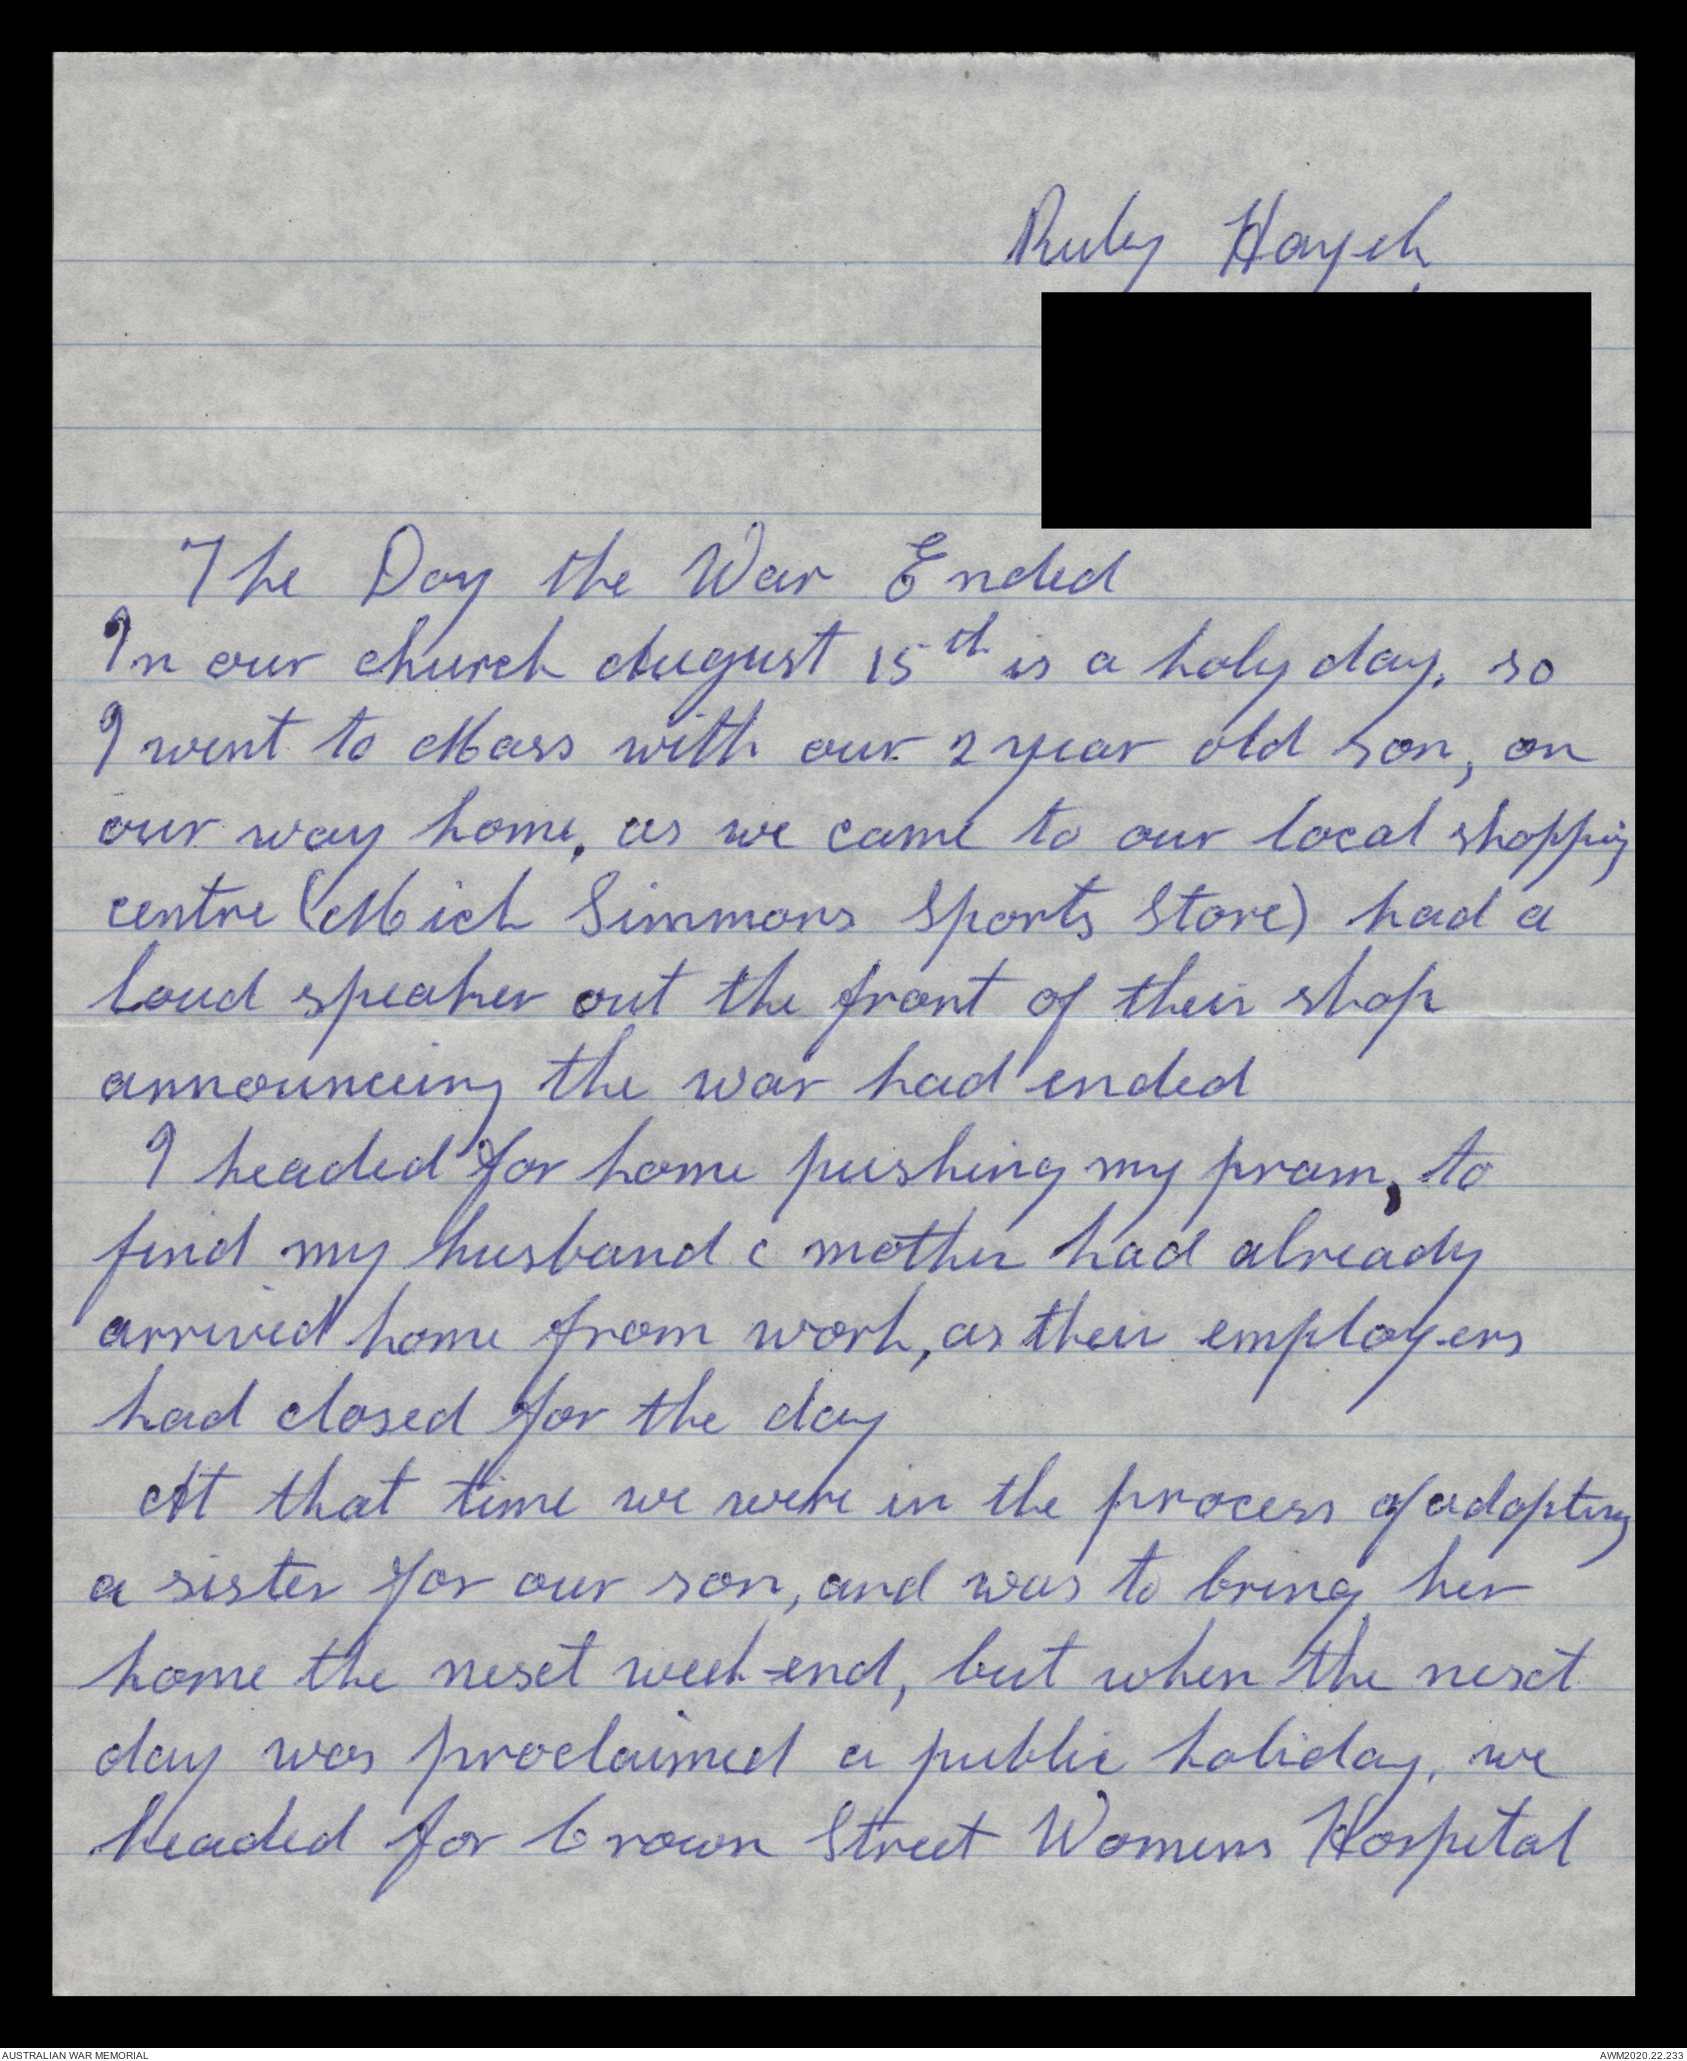 Ruby Hayek
The Day the War Ended
In our church August 15th is a holy day, so
I went to Mass with our 2 year old son, on
our way home, as we came to our local shopping
centre (Mick Simmons Sports Store) had a
loud speaker out the front of their shop
announceing the war had ended
I headed for home pushing my pram, to
find my husband & mother had already
arrived home from work, as their employers
had closed for the day
At that time we were in the process of adopting
a sister for our son, and was to bring her
home the next week-end, but when the next
day was proclaimed a public holiday, we
headed for Crown Street Womens Hospital
AUSTRALIAN WAR MEMORIAL
AWM2020.22.233